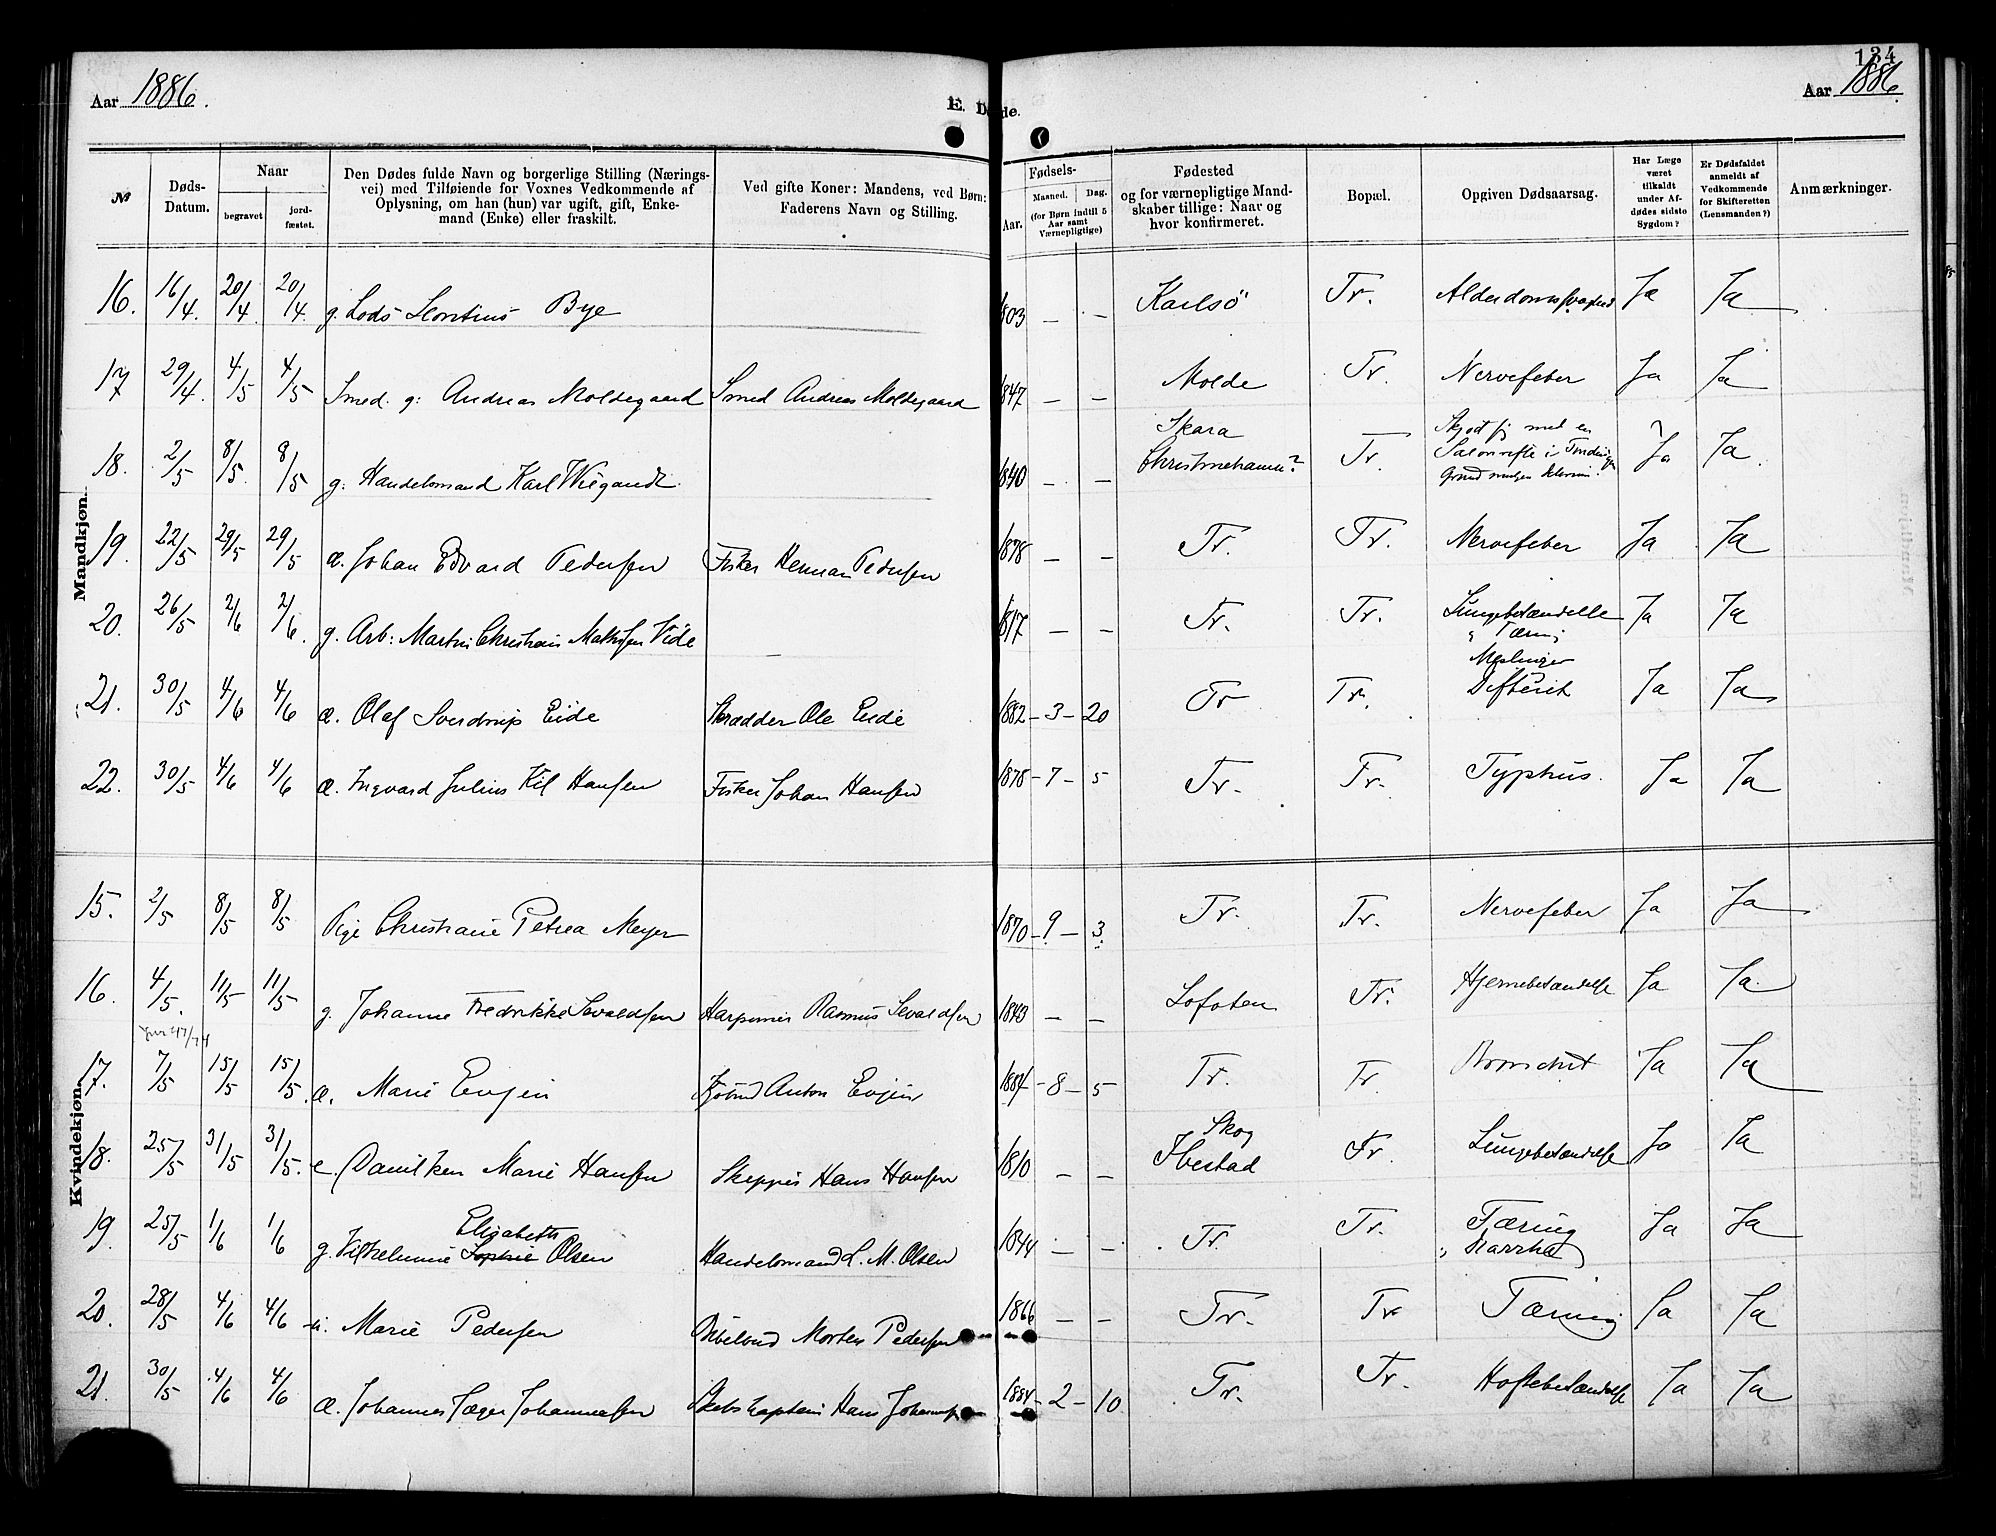 134
Aar 1886.
E. Døde.
Aar 1886.
№
Døds-Datum.
Naar
begravet
jord-fæstet.
Den Dødes fulde Navn og borgerlige Stilling (Nærings-
vei) med Tilføiende for Voxnes Vedkommende af
Oplysning, om han (hun) var ugift, gift, Enke-
mand (Enke) eller fraskilt.
Ved gifte Koner: Mandens, ved Børn:
Faderens Navn og Stilling.
Fødsels-
Aar.
Maaned.
Dag.
(for Børn indtil 5
Aar samt
Værnepligtige)
Fødested
og for værnepligtige Mand-
skaber tillige: Naar og
hvor konfirmeret.
Bopæl.
Opgiven Dødsaarsag.
Har Læge
været
tilkaldt
under Af-
dødes sidste
Sygdom?
Er Dødsfaldet
anmeldt af
Vedkommende
for Skifteretten
(Lensmanden?)
Anmærkninger.
Mandkjøn.
16. 16/4. 20/4. 20/4. g. Lods Leontius Bye 1803 — — Karlsö Tr. Ja Ja
17 29/4. 4/5 4/5 Smed. g: Andreas Moldegaard Smed Andreas Moldegaard 1847 — — Molde Tr. Nervefeber Ja Ja
18. 2/5 8/5. 8/5 g. Handelsmand Karl Wiegandt. 1840 — — Skara
Christinehamn? Tr. Skjød sig med en
Salonrifle i Ja Ja.
19. 22/5 29/5 29/5 æ. Johan Edvard Pedersen Fisker Herman Pedersen 1878 — — Tr. Tr. Nervefeber Ja Ja
20. 26/5 2/6 2/6. g. Arb: Martin Christian Vide 1817 — — Tr. Tr. Lungebetændelse
Tæring Ja Ja
21. 30/5 4/6 4/6 æ. Olaf Sverdrup Eide Skrædder Ole Eide 1882 — 3 — 20 Tr Tr. Meslinger
Difterit Ja Ja
22. 30/5 4/6 4/6 æ. Ingvard Julius Kil Hansen Fisker Johan Hansen 1878 — 7 — 5 Tr. Tr. Typhus. Ja Ja
Kvindekjøn.
15. 2/5 8/5 8/5 Pige Christiane Petrea Meyer 1870 — 9 — 3. Tr. Tr. Nervefeber Ja Ja
16. 4/5. 11/5 11/5 g. Johanne Fredrikke Sevaldsen Rasmus Sevaldsen 1843 — — Lofoten Tr. Hjernebetændelse Ja Ja.
17. 7/5 15/5 15/5. æ. Marie Evjen Anton Evjen 1884 — 8 — 5 Tr. Tr. Bronchit Ja Ja
18. 25/5 31/5 31/5. e. Daniken Marie Hansen Skipper Hans Hansen 1810 — — Skog
Ibestad Tr. Lungebetændelse Ja Ja
19. 25/5 1/6 1/6 g. Vilhelmine Elisabeth Sophie Olsen Handelsmand L. M. Olsen 1844 — — Tr. Tr. Tæring Ja Ja
20. 28/5 4/6 4/6 u. Marie Pedersen Morten Pedersen 1866 — — Tr. Tr Tæring Ja Ja
21. 30/5 4/6 4/6 æ. Johannes Jæger Johannesen Skibskaptein Hans 1884 — 2 — 10 Tr. Tr. Hoftebetændelse Ja Ja